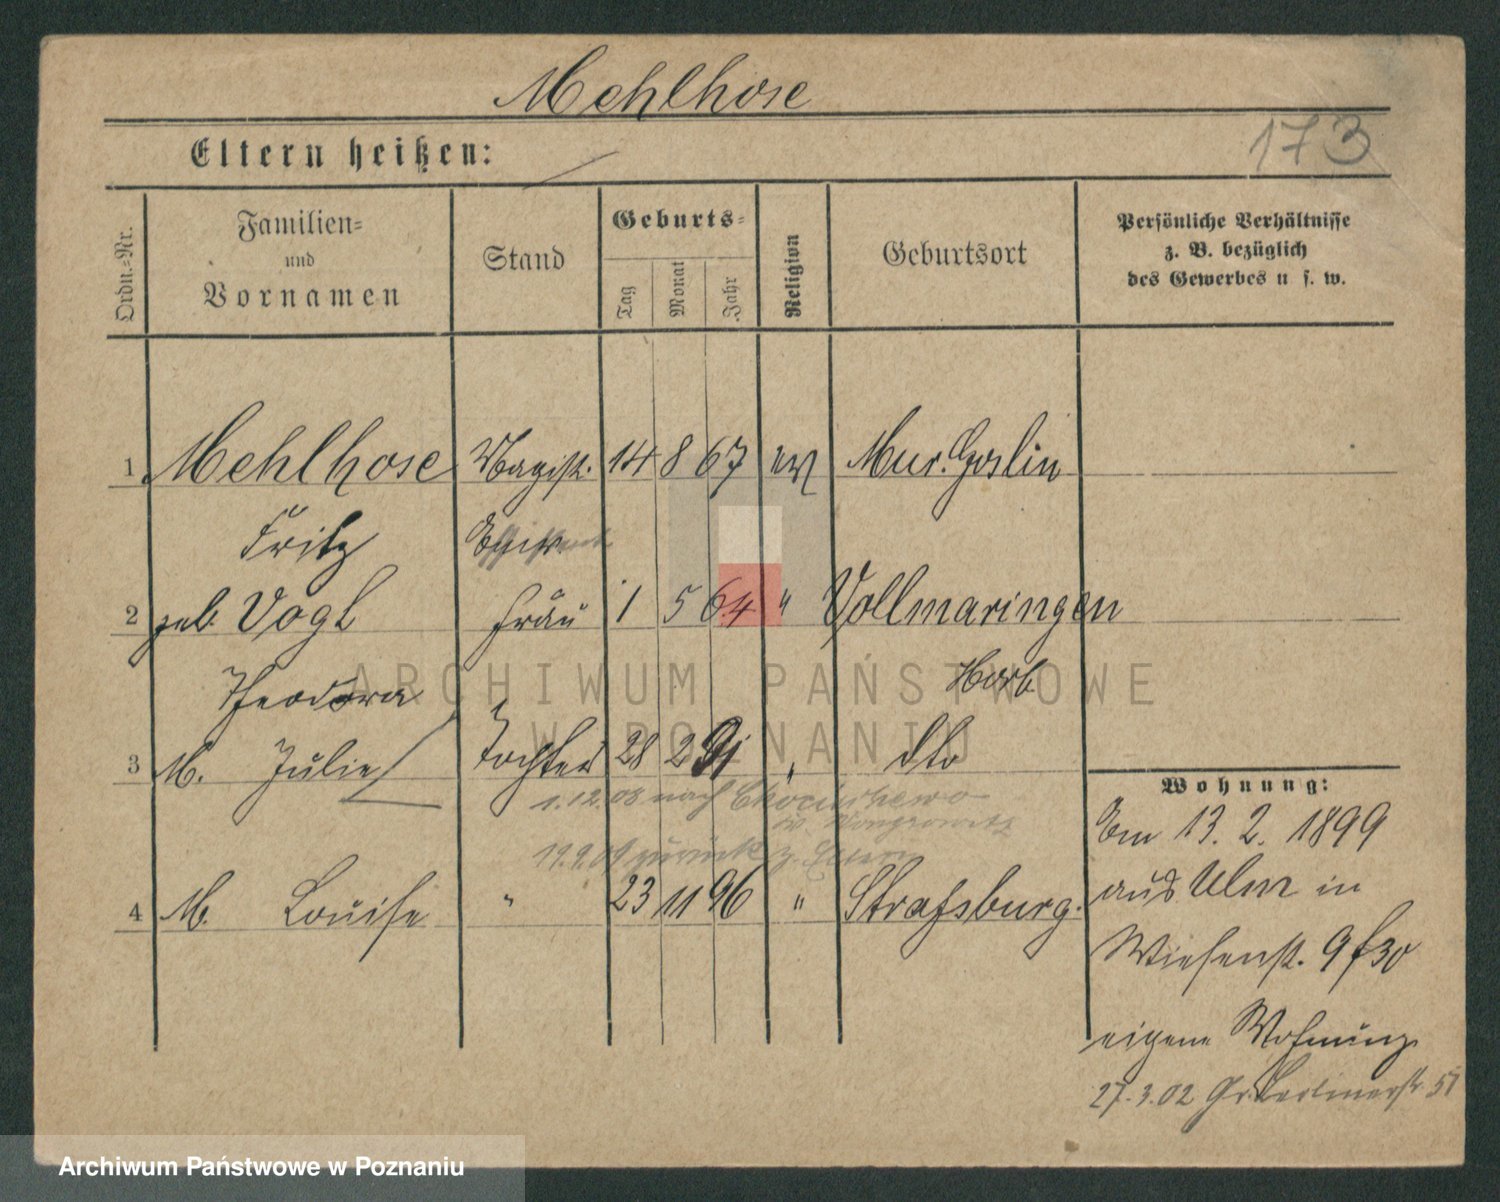 Mehlhose
173
Eltern heißen:
Ordn.-Nr.
Familien-
und
Vornamen
Stand
Geburts-
Tag
Monat
Jahr
Religion
Geburtsort
Persönliche Verhältnisse
z. B. bezüglich
des Gewerbes u. s. w.
1 Mehlhose Magist. 14 8 67 ev Mur. Goslin
Fritz
2 geb. Vogt Frau 1 5 64 " Vollmaringen
Theodora Horb
3 M. Julie Tochter 28 2 91 " dto
1.12.08 nach
Wongrowitz
19.9.09 zurück z. Eltern
4 M. Louise " 23 11 96 " Strafsburg.
Wohnung:
Am 13. 2. 1899
aus Ulm in
Wiesenst. 9 f 30
eigene Wohnung
27.3.02 Gr. Berlinerstr. 51
ARCHIWUM PAŃSTWOWE
W POZNANIU
Archiwum Państwowe w Poznaniu